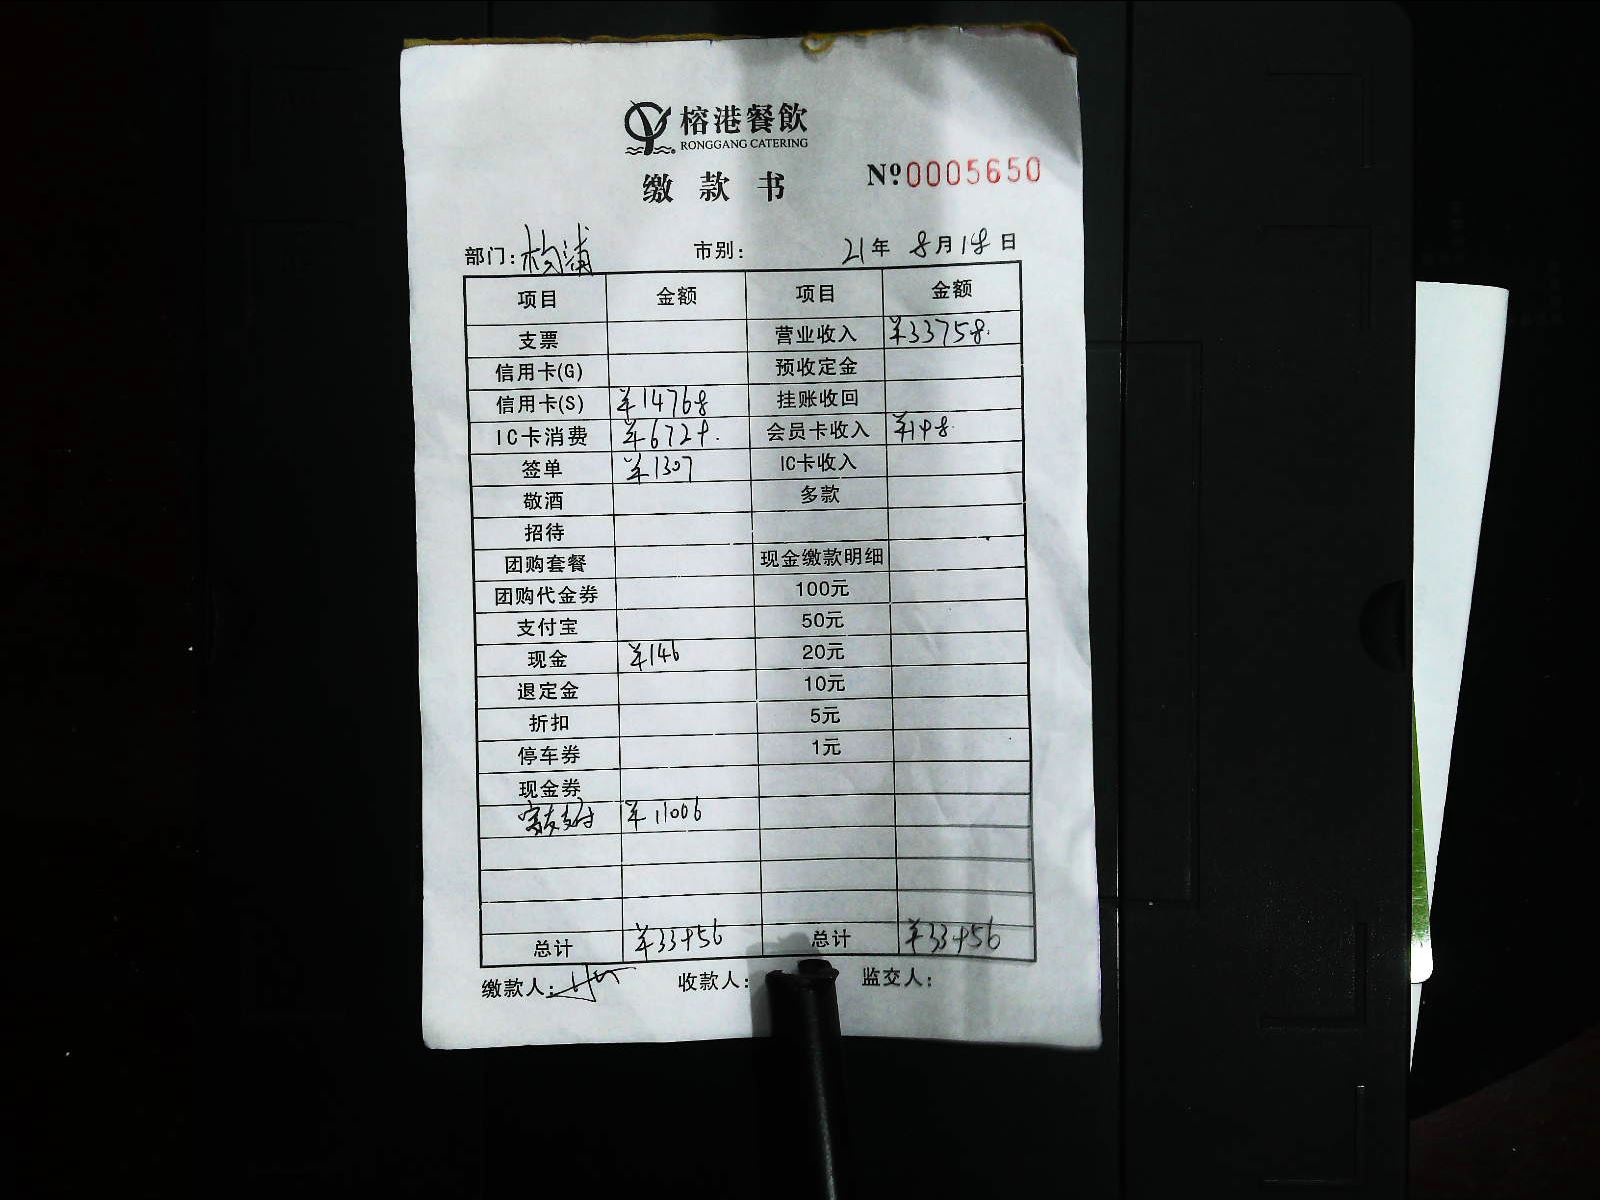 榕港餐飲
RONGGANG CATERING
缴款书
№0005650
部门: 杨浦 市别: 21年 8月18日
项目 金额 项目 金额
支票 营业收入 ¥33758.
信用卡(G) 预收定金
信用卡(S) ¥14768 挂账收回
IC卡消费 ¥6729. 会员卡收入 ¥198.
签单 ¥1307 IC卡收入
敬酒 多款
招待
团购套餐 现金缴款明细
团购代金券 100元
支付宝 50元
现金 ¥146 20元
退定金 10元
折扣 5元
停车券 1元
现金券
支付 ¥11006
总计 ¥33956 总计 ¥33956
缴款人: 收款人: 监交人: